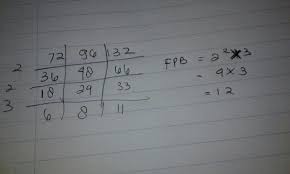 72 96 132
2 36 48 66
2 18 24 33
3 6 8 11
FPB = 2² × 3
= 4 × 3
= 12